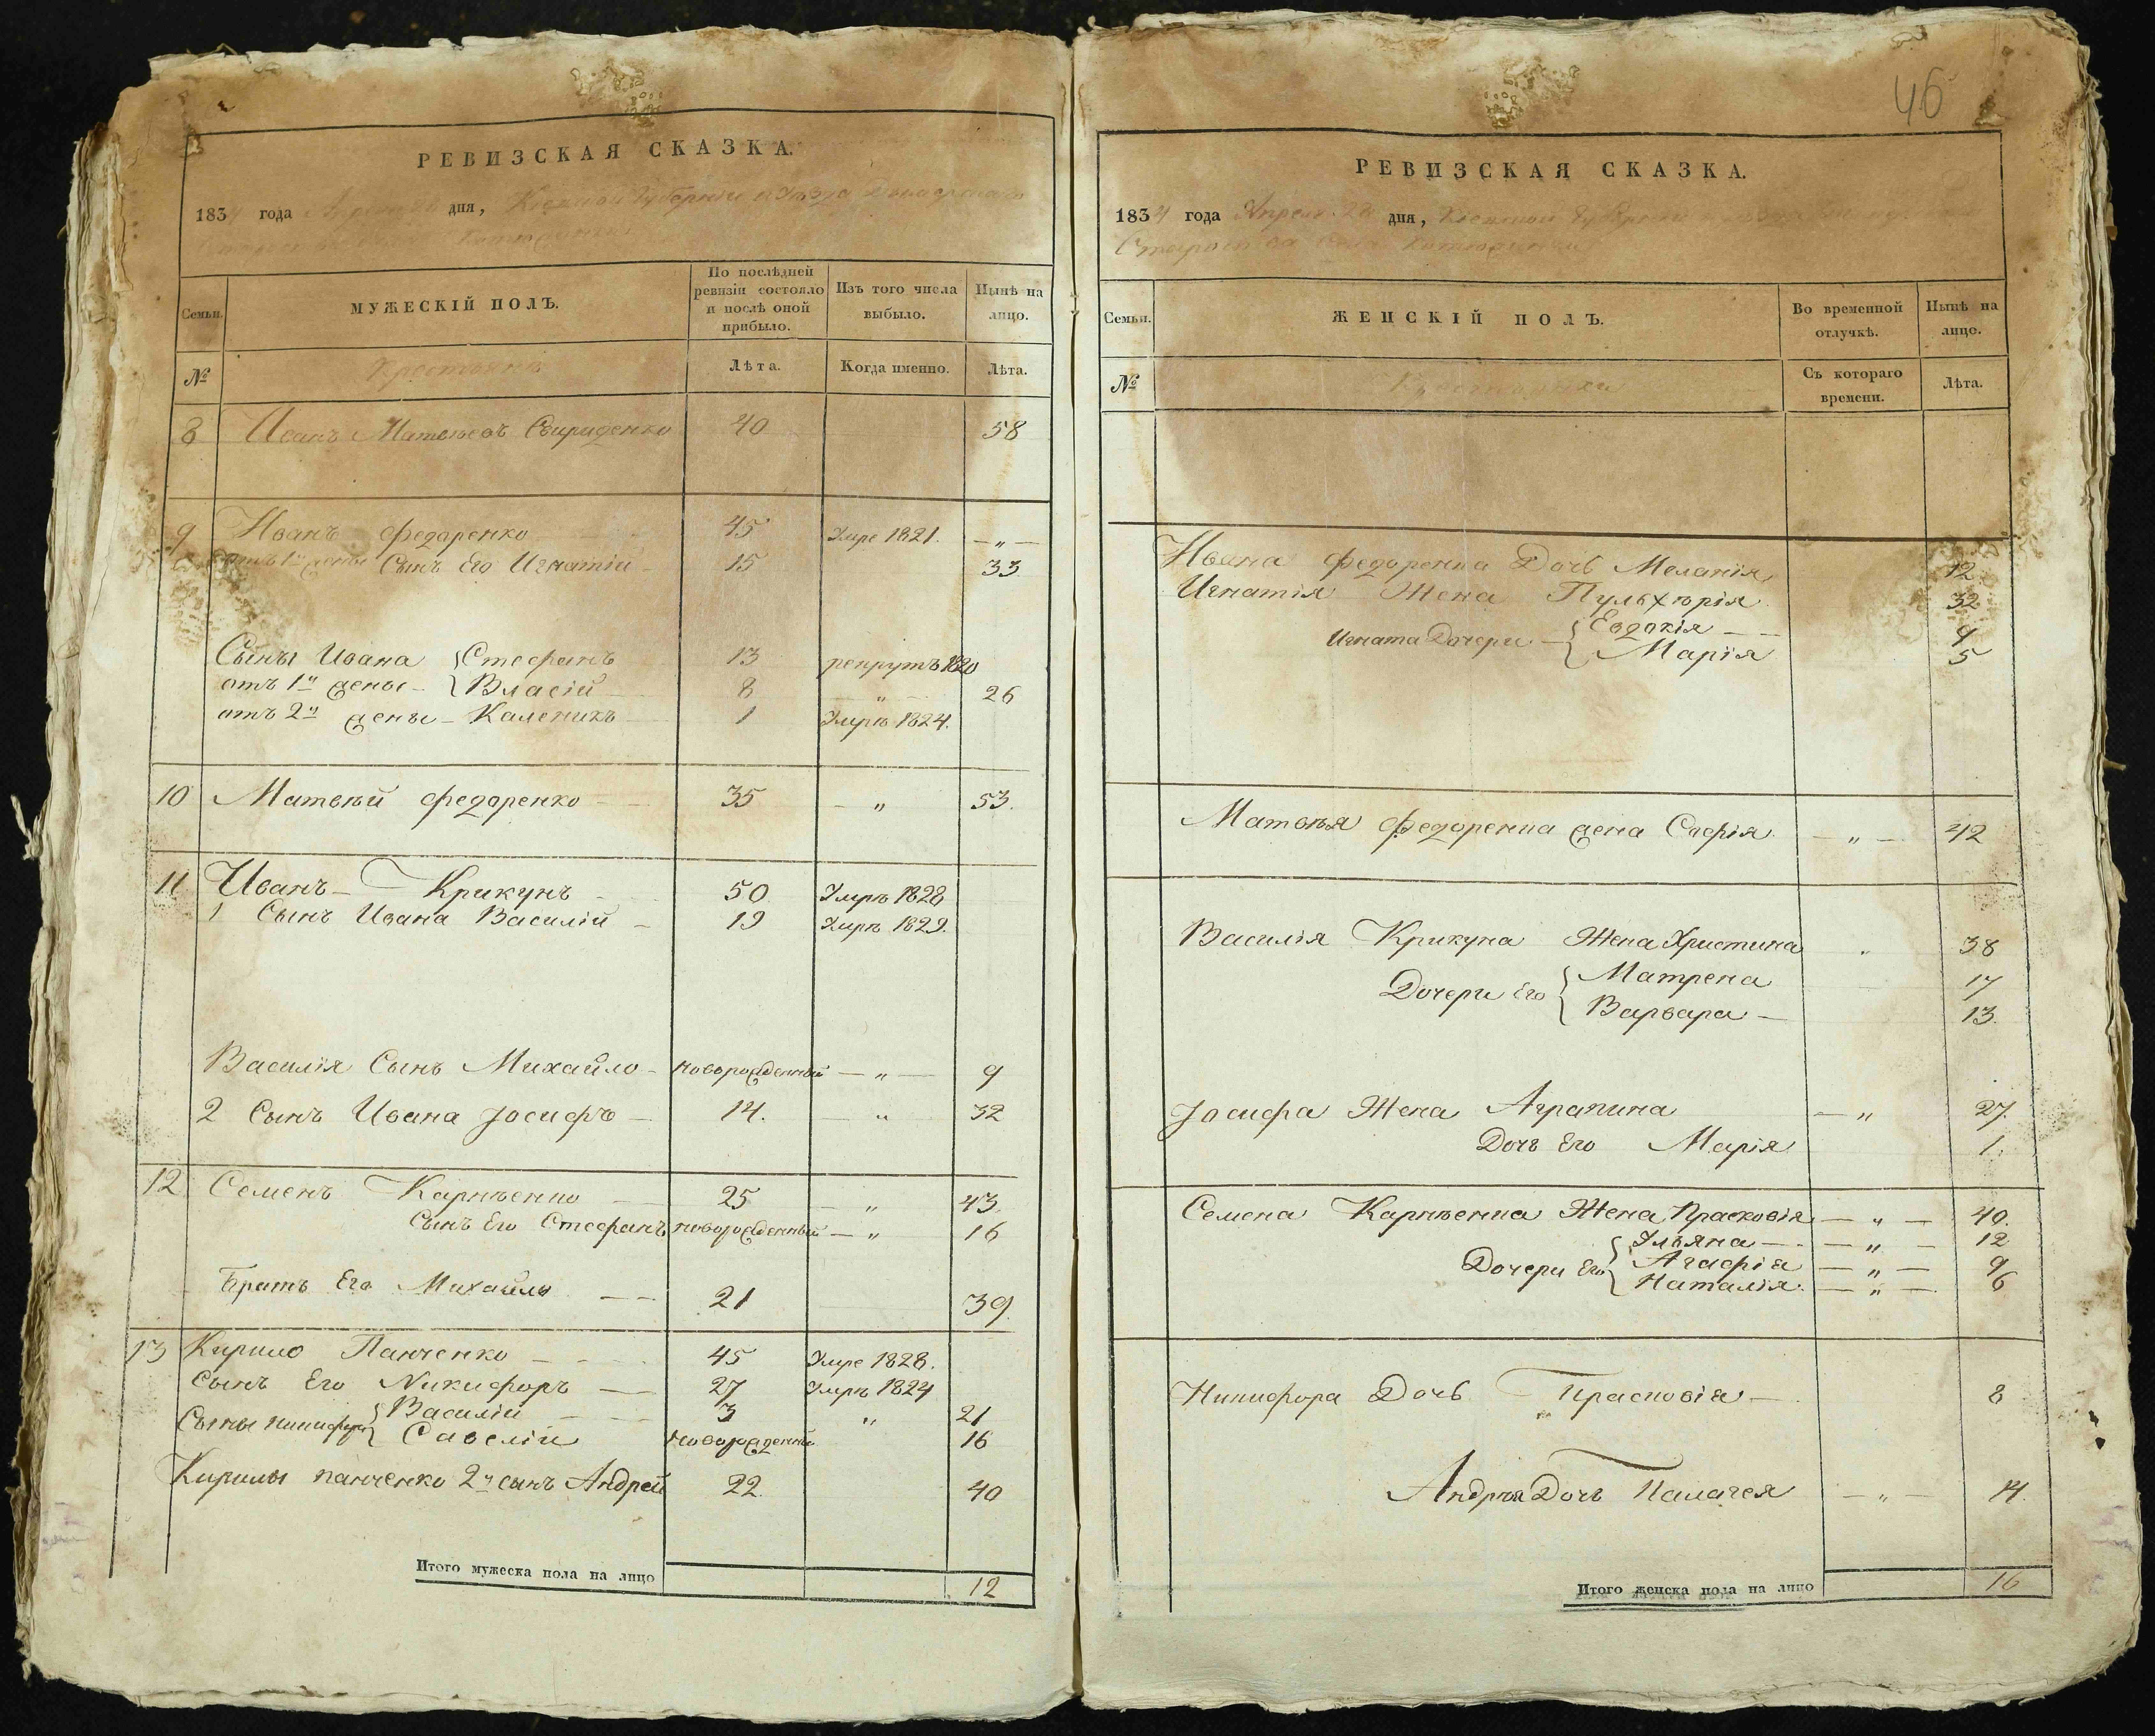 РЕВИЗСКАЯ СКАЗКА.
1834 года дня, Кіевской Губерніи
Семьи.
МУЖЕСКІЙ ПОЛЪ.
По послѣдней ревизіи состояло и послѣ оной прибыло.
Изъ того числа выбыло.
Нынѣ на лицо.
№
Крестьяне
Лѣта.
Когда именно.
Лѣта.
8 Иванъ Матвѣевъ Свириденко 40 58
9 Иванъ Федоренко 45 Умре 1821. — „ —
отъ 1й жены Сынъ Его Игнатій 15 33
Сыны Ивана { Стефанъ 13 рекрутъ 1820
отъ 1й жены — { Власій 8 „ 26
отъ 2й жены — Каленикъ 1 Умрѣ 1824.
10 Матвѣй Федоренко 35 — „ 53.
11 Иванъ — Крикунъ 50 Умрѣ 1828
1 Сынъ Ивана Василій — 19 Умрѣ 1829.
Василія Сынъ Михайло — новорожденный — „ — 9
2 Сынъ Ивана Іосифъ — 14. „ 32
12 Семенъ Карнѣенко 25 — „ 43.
Сынъ Его Стефанъ новорожденный — „ 16
Братъ Его Михайло — 21 39
13 Кирило Панченко — 45 Умре 1828.
Сынъ Его Никифоръ — 27 Умрѣ 1824
Сыны Никифора { Василій 3 „ 21
{ Савелій новорожденный 16
Кирилы Панченко 2й сынъ Андрей 22 40
Итого мужеска пола на лицо 12
46
РЕВИЗСКАЯ СКАЗКА.
1834 года Апреля 28 дня, Кіевской Губерніи
Семьи.
ЖЕНСКІЙ ПОЛЪ.
Во временной отлучкѣ.
Нынѣ на лицо.
№
Съ котораго времени.
Лѣта.
Ивана Федоренка Дочь Меланія 12
Игнатія Жена Пульхѣрія 32
Игната Дочери — { Евдокія — 9
{ Марія 5
Матвѣя Федоренка жена Софія — „ — 42
Василія Крикуна Жена Христина „ 38
Дочери Его { Матрена 17
{ Варвара — 13.
Іосифа Жена Аграпина — „ 27.
Дочь Его Марія 1.
Семена Карнѣенка Жена Прасковія — „ — 40.
{ Ульяна — — „ — 12
Дочери Его { Агафія — „ — 9
{ Наталія. — „ — 6
Никифора Дочь Прасковія — 8
Андрѣя Дочь Палагея — „ — 14.
Итого женска пола на лицо 16